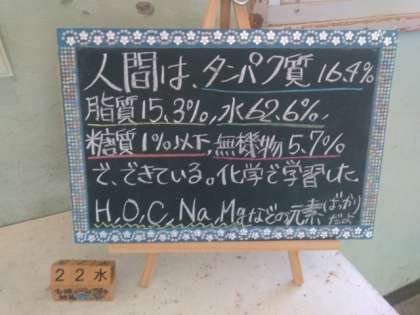 人間は、タンパク質16.4%
脂質15.3%、水62.6%、
糖質1%以下、無機物5.7%
で、できている。化学で学習した
H,O,C,Na,Mgなどの元素ばっかり
だよ
22水